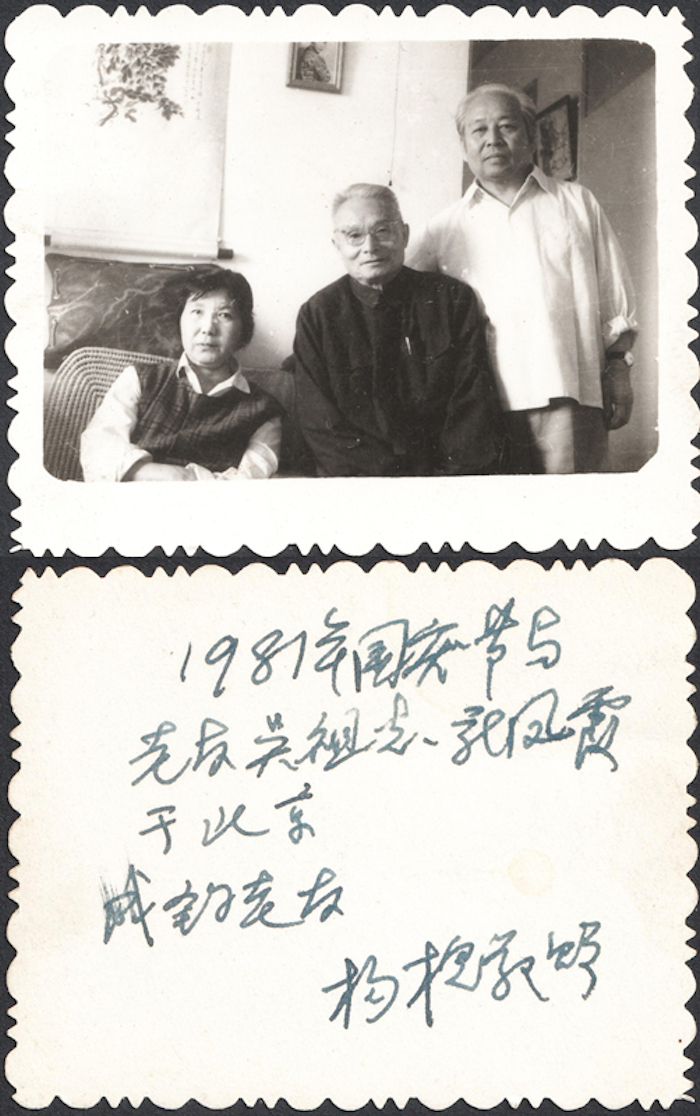 1981年国庆节与
老友吴祖光、新凤霞
于北京
老友
杨槐敬赠